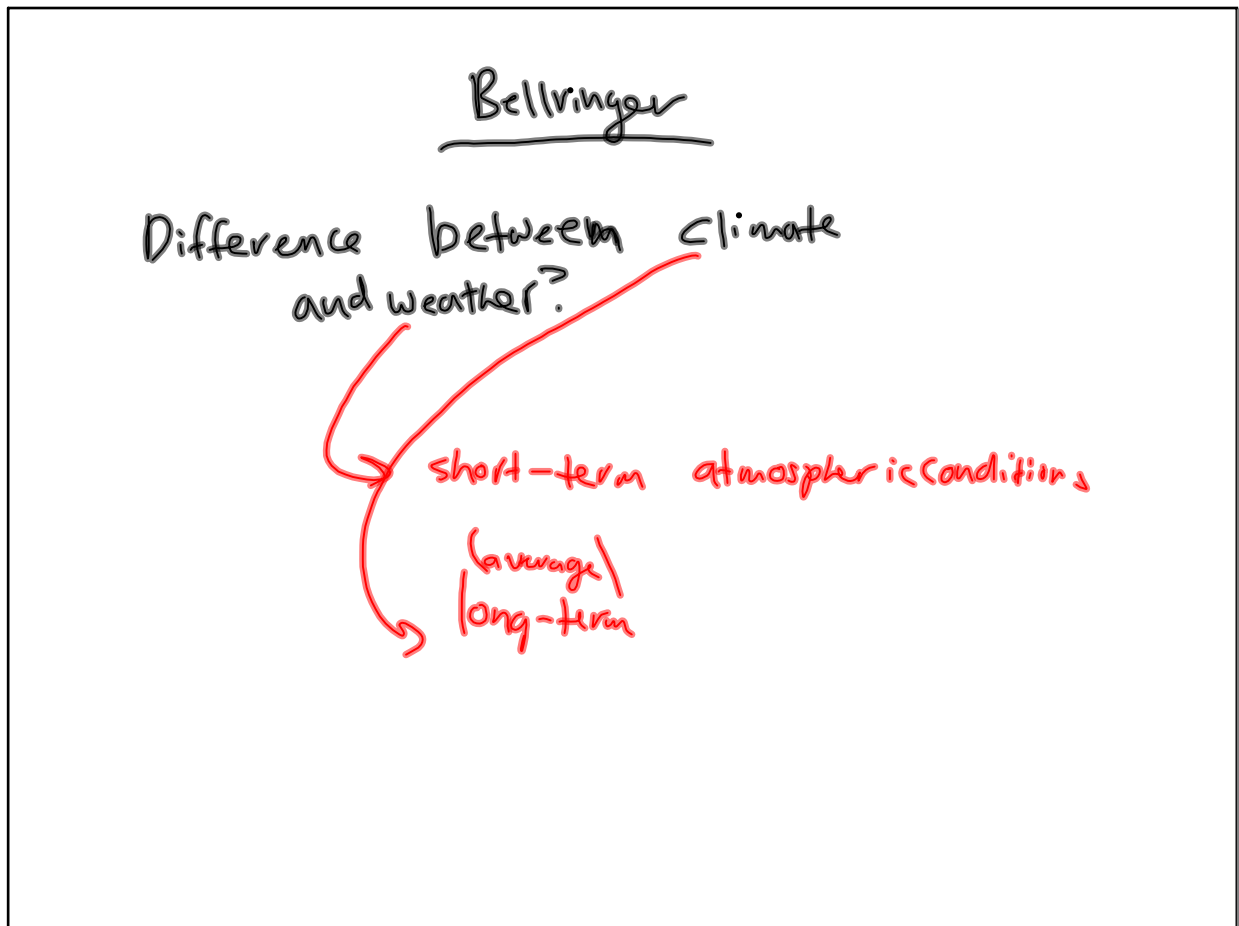 Bellringer
Difference between climate
and weather?
short-term atmospheric conditions
(average)
long-term